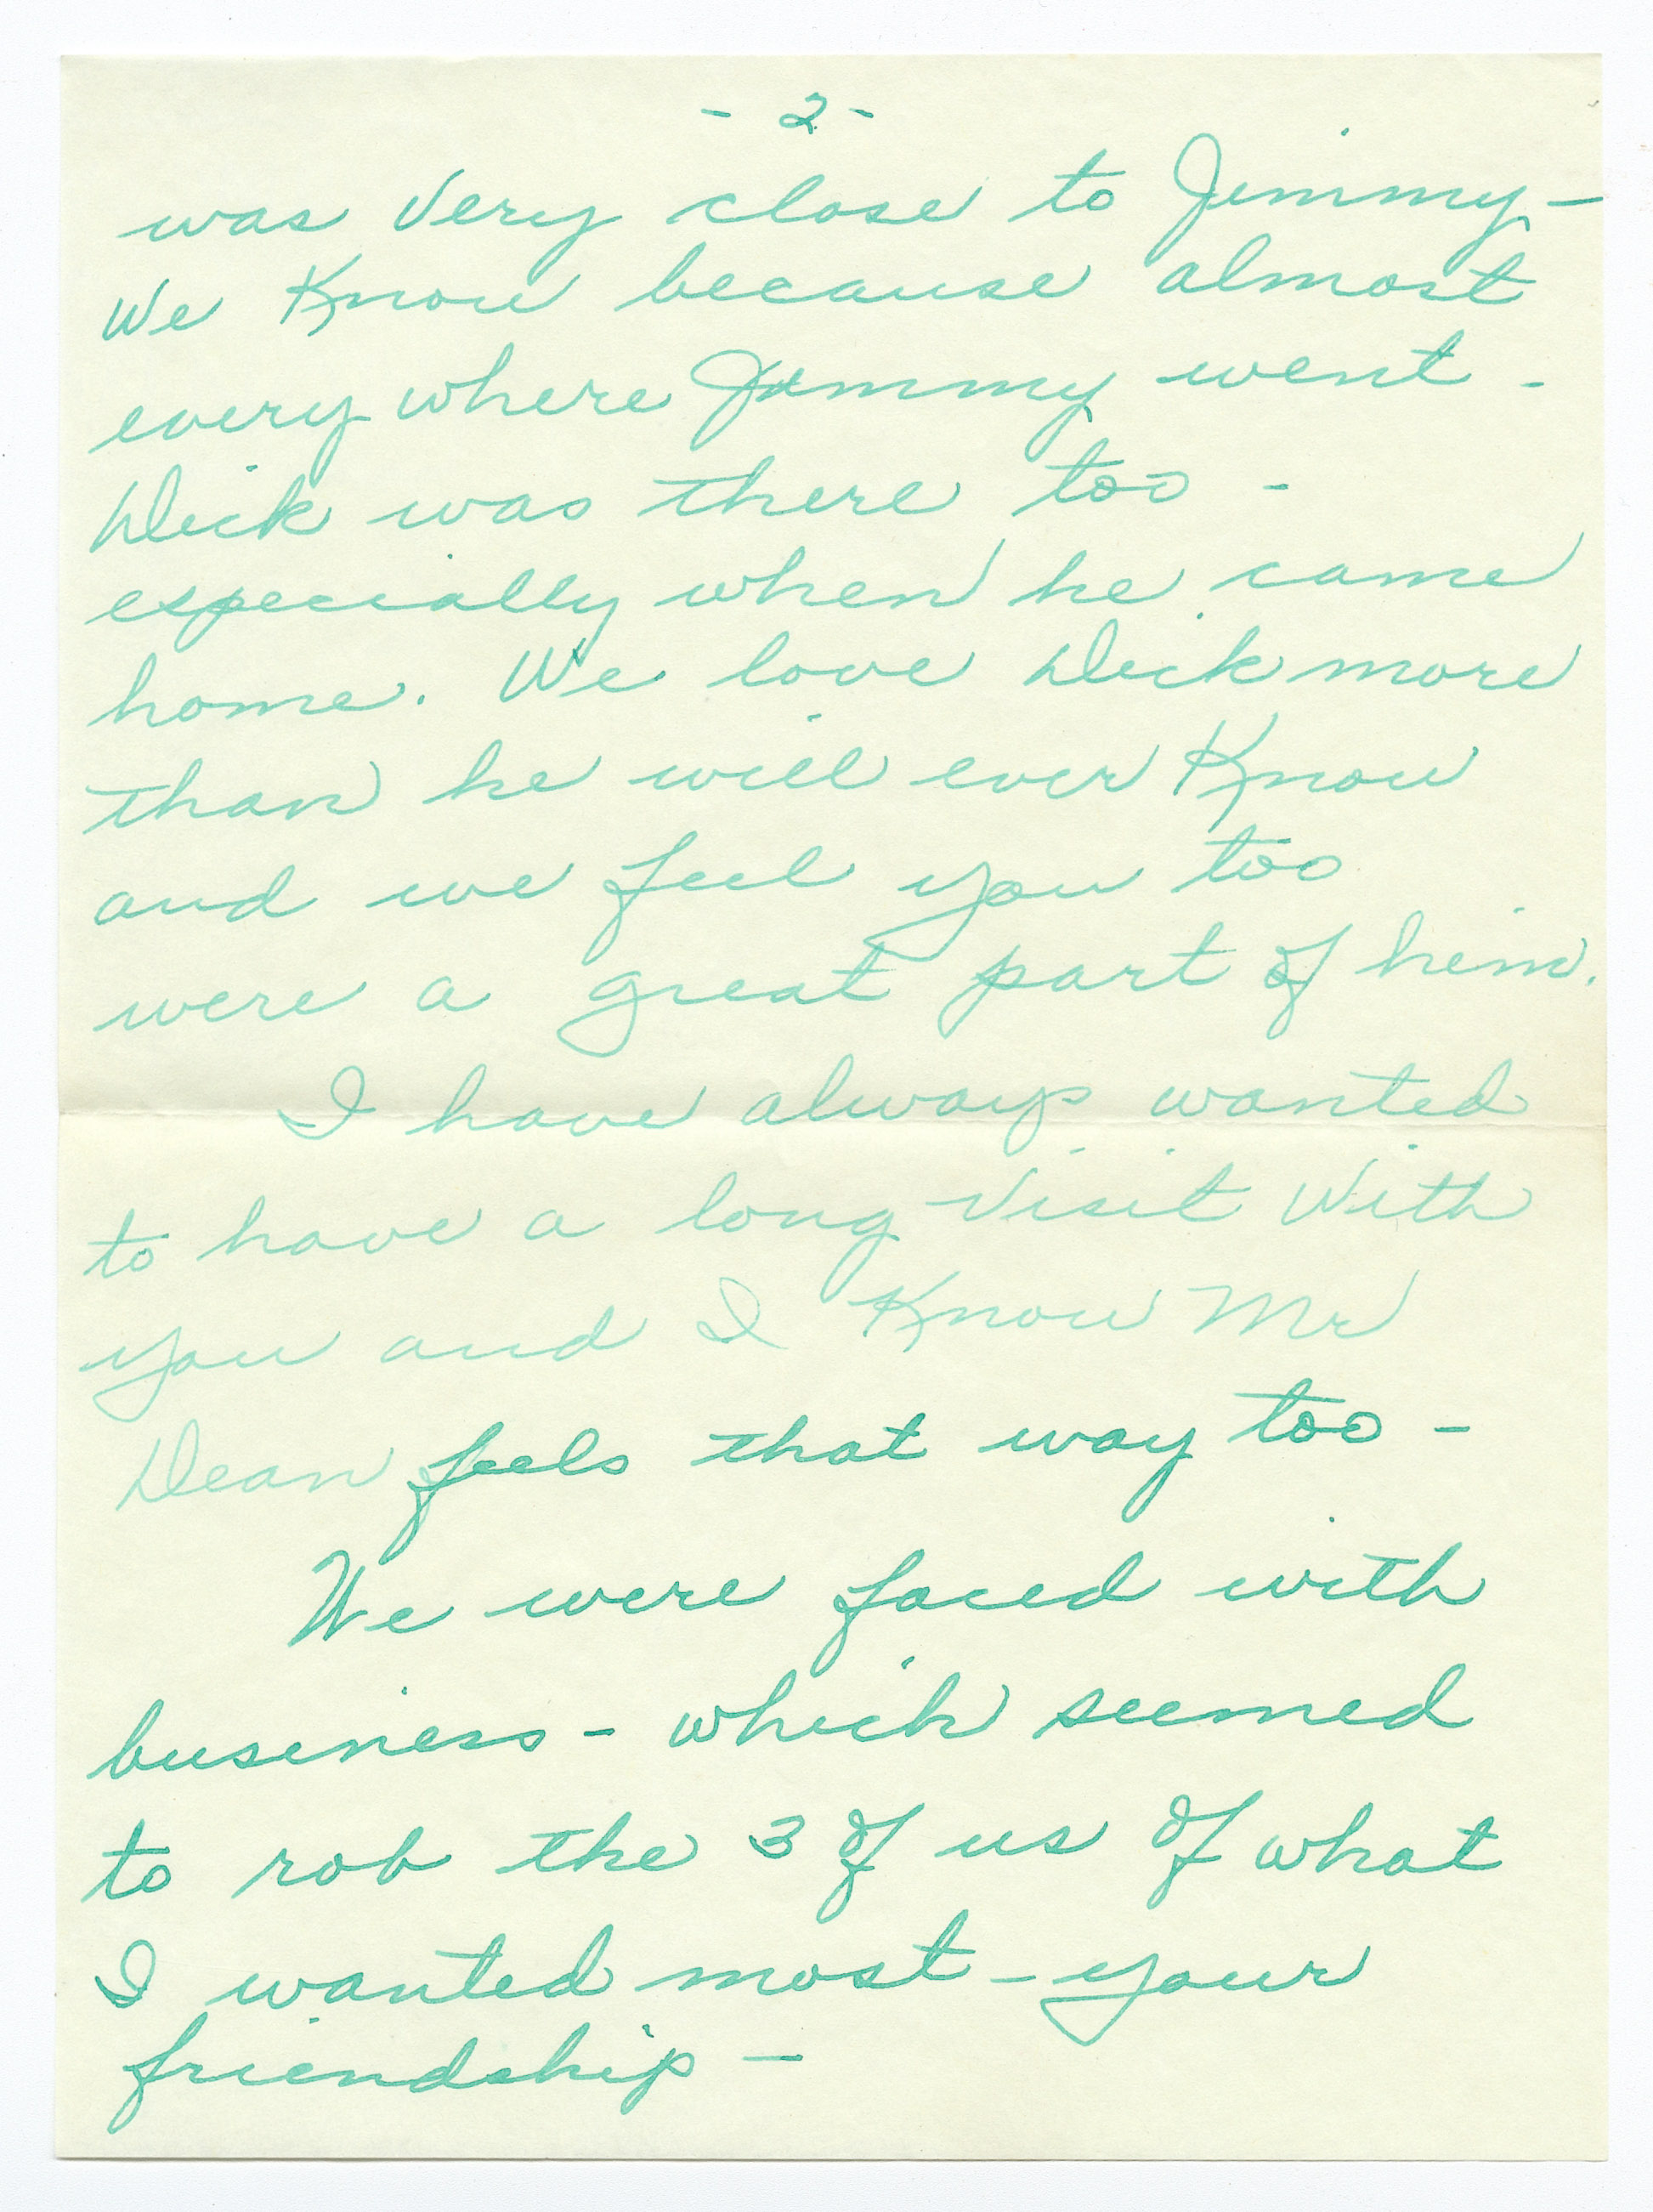 - 2 -
was very close to Jimmy -
We Know because almost
every where Jimmy went -
Dick was there too -
especially when he came
home. We love Dick more
than he will ever Know
and we feel you too
were a great part of him.
I have always wanted
to have a long visit with
you and I Know Mr
Dean feels that way too -
We were faced with
business - which seemed
to rob the 3 of us of what
I wanted most - your
friendship -